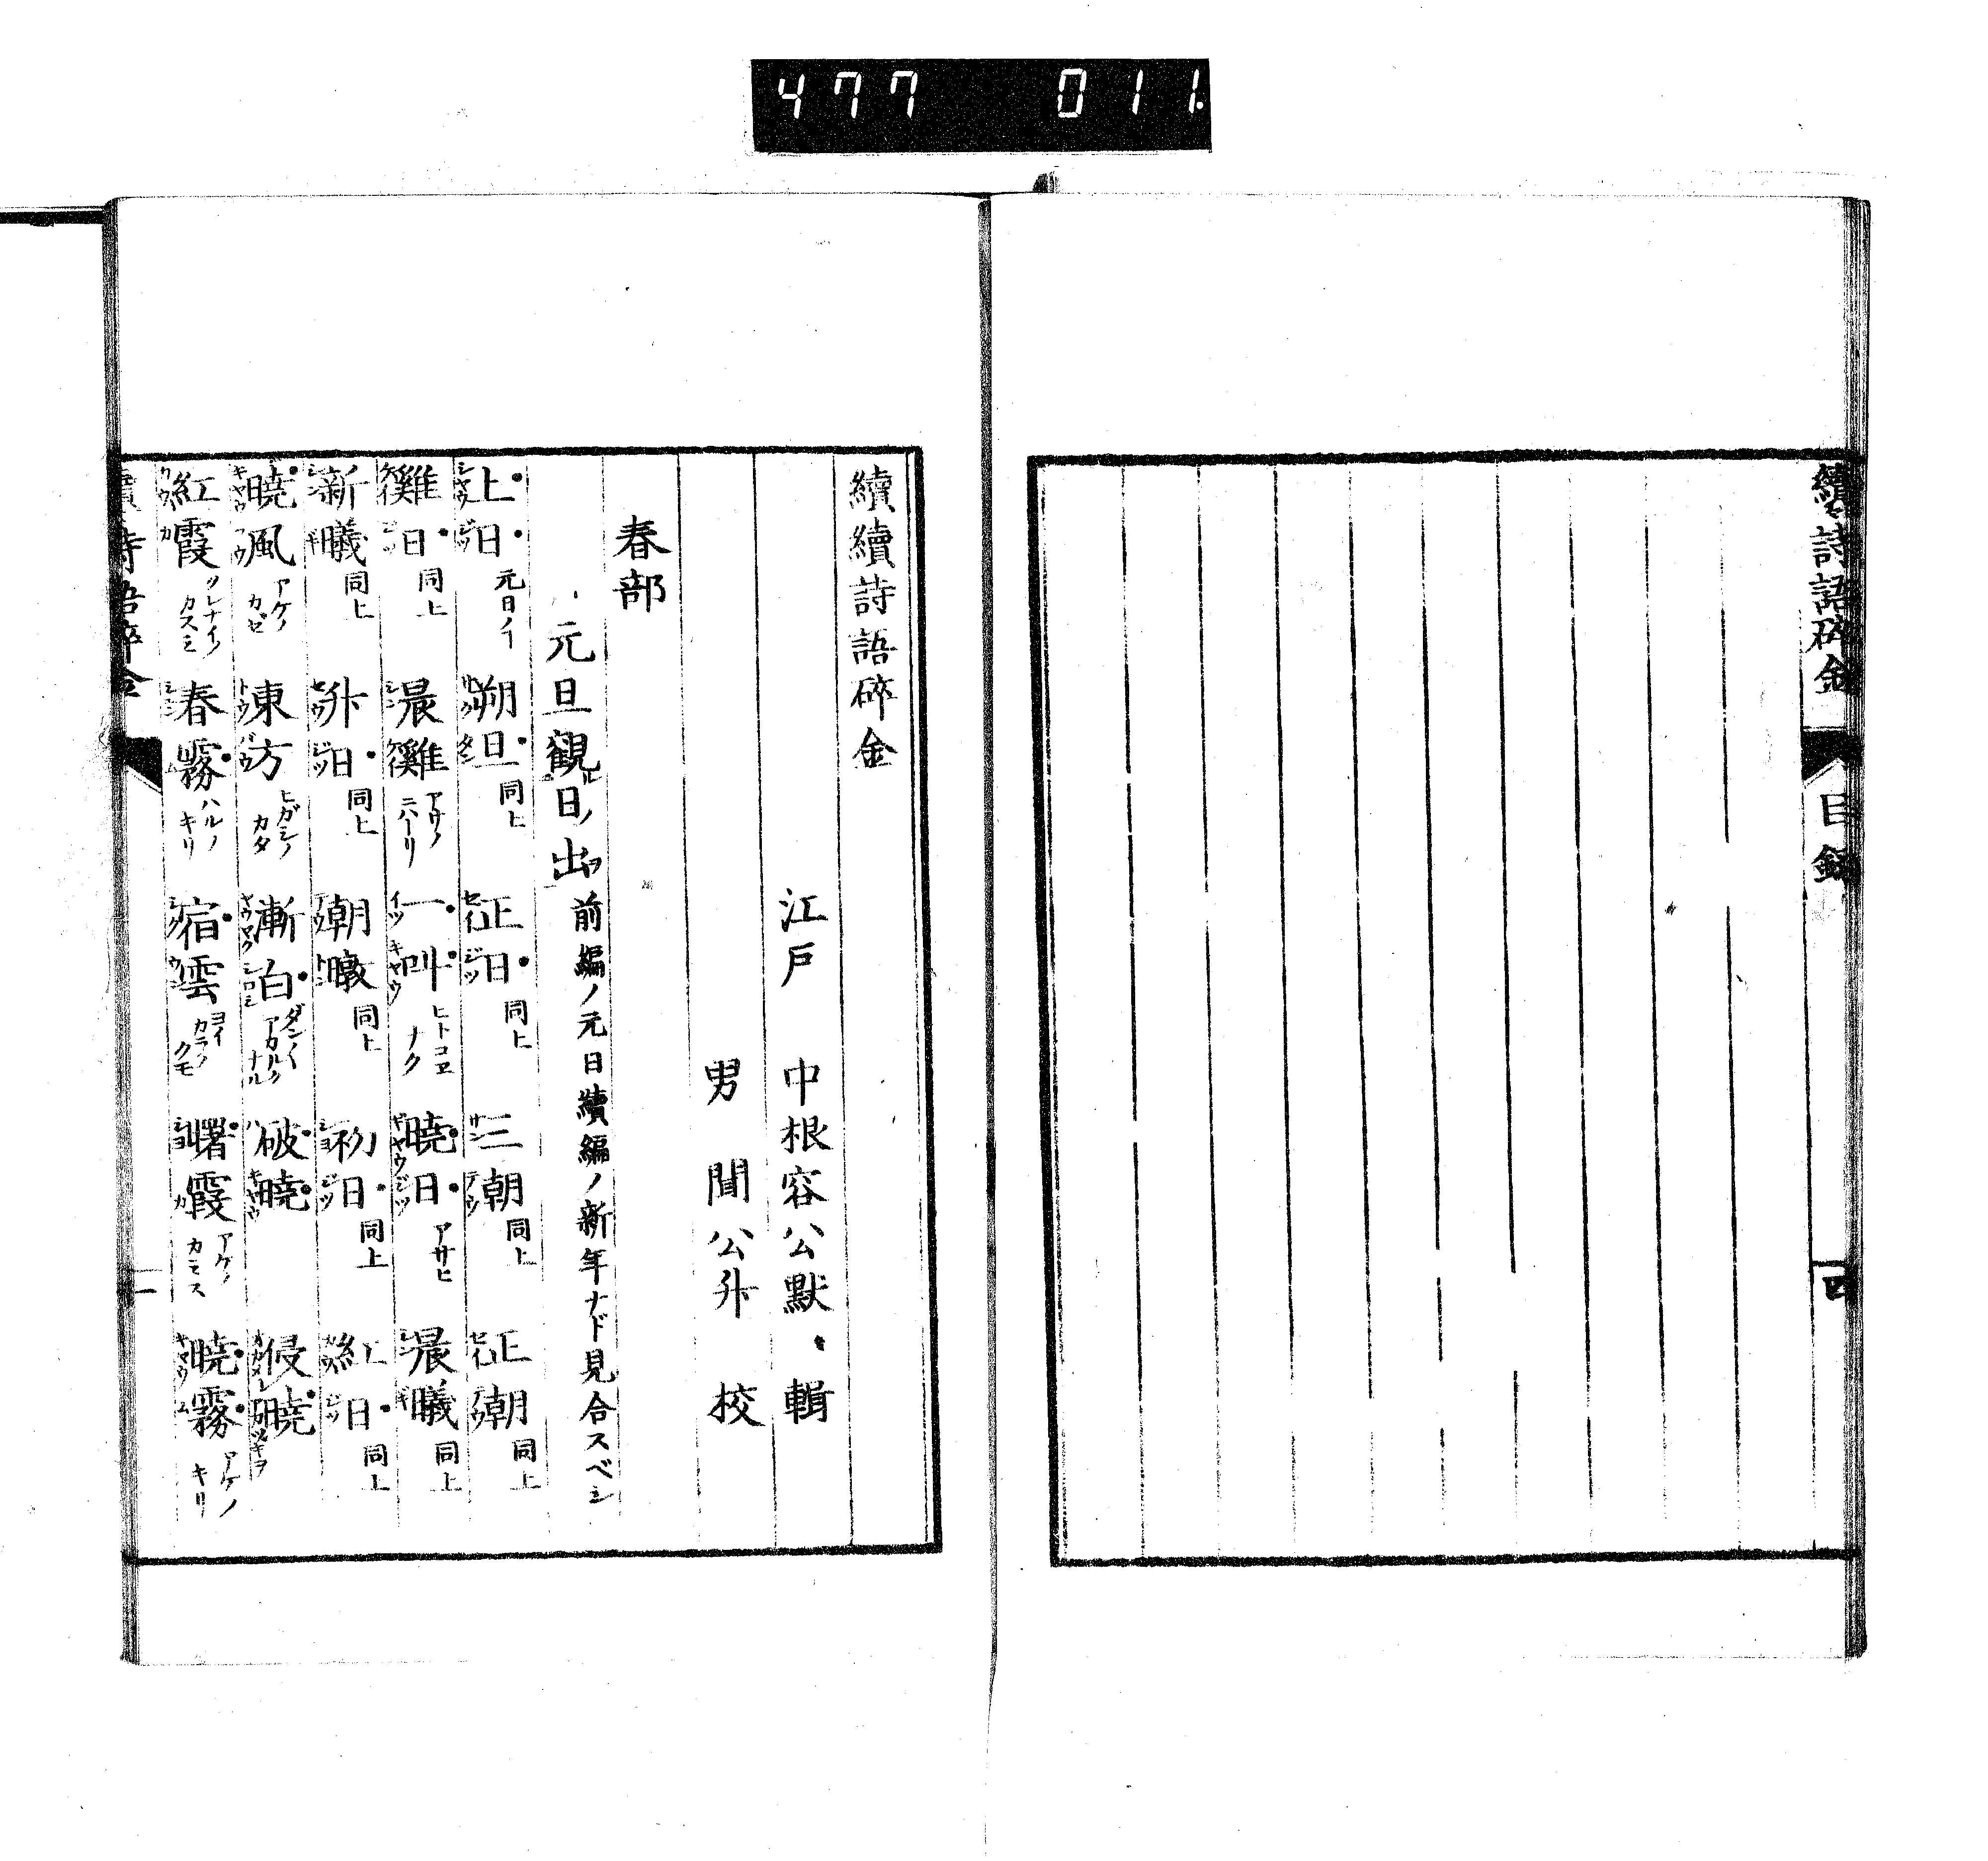 477 011
續々詩語碎金 目錄 四
續續詩語碎金
江戸 中根容公默、輯
男 聞公升 校
春部
元旦觀日ノ出ヲ 前編ノ元日續編ノ新年ナド見合スベシ
上日 元日ノ 朔旦 同上 正日 同上 三朝 同上 正朝 同上
雞日 同上 晨雞 アサノ ニハトリ 一叫 ヒトコヱ ナク 曉日 アサヒ 晨曦 同上
新曦 同上 升日 同上 朝暾 同上 初日 同上 紅日 同上
曉風 アケノ カゼ 東方 ヒガシノ カタ 漸白 ダン〱 アカルク ナル 破曉 侵曉
紅霞 クレナイノ カスミ 春霧 ハルノ キリ 宿雲 ヨイ カラノ クモ 曙霞 アケノ カミス 曉霧 アケノ キリ
詩語碎金 一